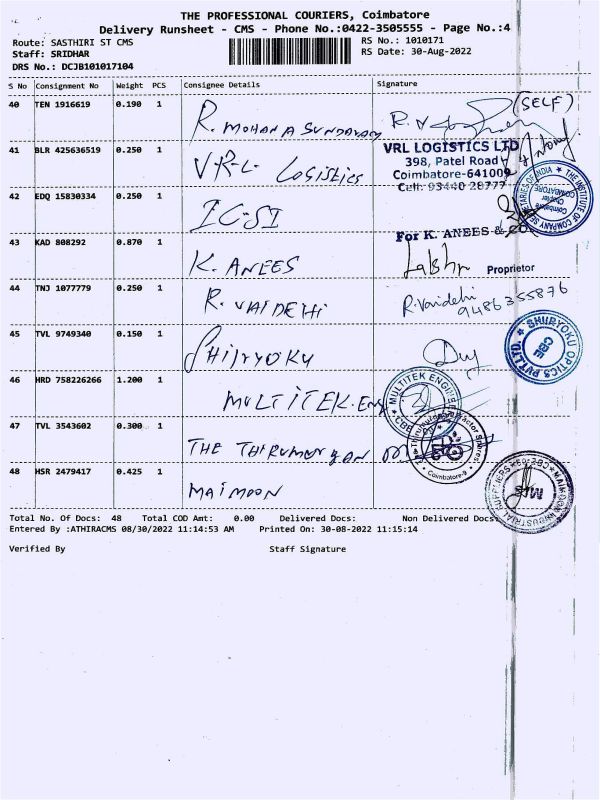 THE PROFESSIONAL COURIERS, Coimbatore
Delivery Runsheet - CMS - Phone No.:0422-3505555 - Page No.:4
Route: SASTHIRI ST CMS
RS No.: 1010171
Staff: SRIDHAR
RS Date: 30-Aug-2022
DRS No.: DCJB101017104
S No Consignment No Weight PCS Consignee Details Signature
40 TEN 1916619 0.190 1 R. MOHANA SUNDARAM (SELF)
41 BLR 425636519 0.250 1 V-R-L- Logistics
VRL LOGISTICS LTD
398, Patel Road
Coimbatore-641009
Cell: 93440 28777
42 EDQ 15830334 0.250 1 ICSI
THE INSTITUTE OF COMPANY SECRETARIES OF INDIA
Coimbatore Chapter
COIMBATORE
43 KAD 808292 0.870 1 K. ANEES
For K. ANEES & CO.
Proprietor
44 TNJ 1077779 0.250 1 R. VAIDEHI R. Vaidehi
9486355876
45 TVL 9749340 0.150 1 SHIJRYOKU
SHIJRYOKU OPTICS PVT.LTD.
CBE
46 HRD 758226266 1.200 1 MULTITEK-Eng
MULTITEK ENGINEER
CBE
47 TVL 3543602 0.300 1 THE THIRUMURUGAN
Coimbatore-9
48 HSR 2479417 0.425 1 MAIMOON
MAIMOON INDUSTRIAL SUPPLIERS
CBE-9
MIS
Total No. Of Docs: 48 Total COD Amt: 0.00 Delivered Docs: Non Delivered Docs
Entered By :ATHIRACMS 08/30/2022 11:14:53 AM Printed On: 30-08-2022 11:15:14
Verified By Staff Signature